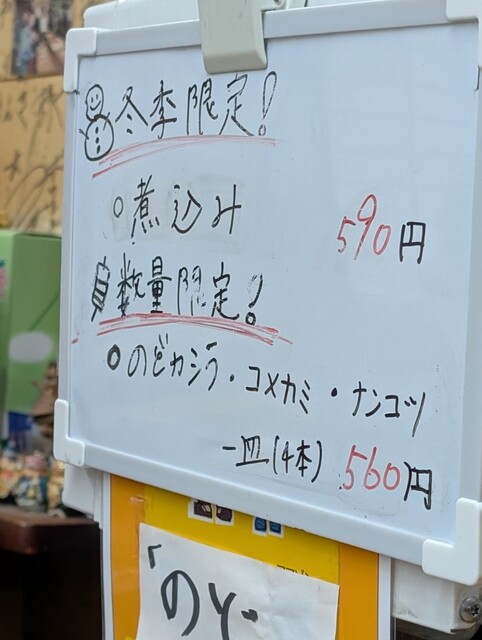 冬季限定!
煮込み 590円
数量限定!
のどカシラ・コメカミ・ナンコツ
一皿(4本) 560円
「のど